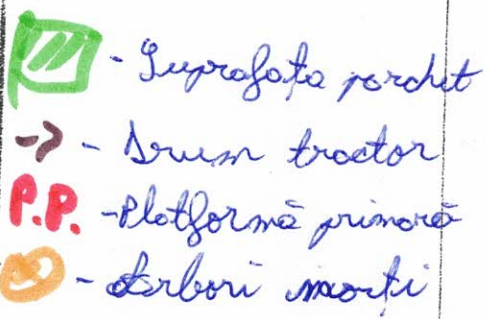 - Suprafața parchet
- Drum tractor
P.P. - Platformă primară
- Arbori morți